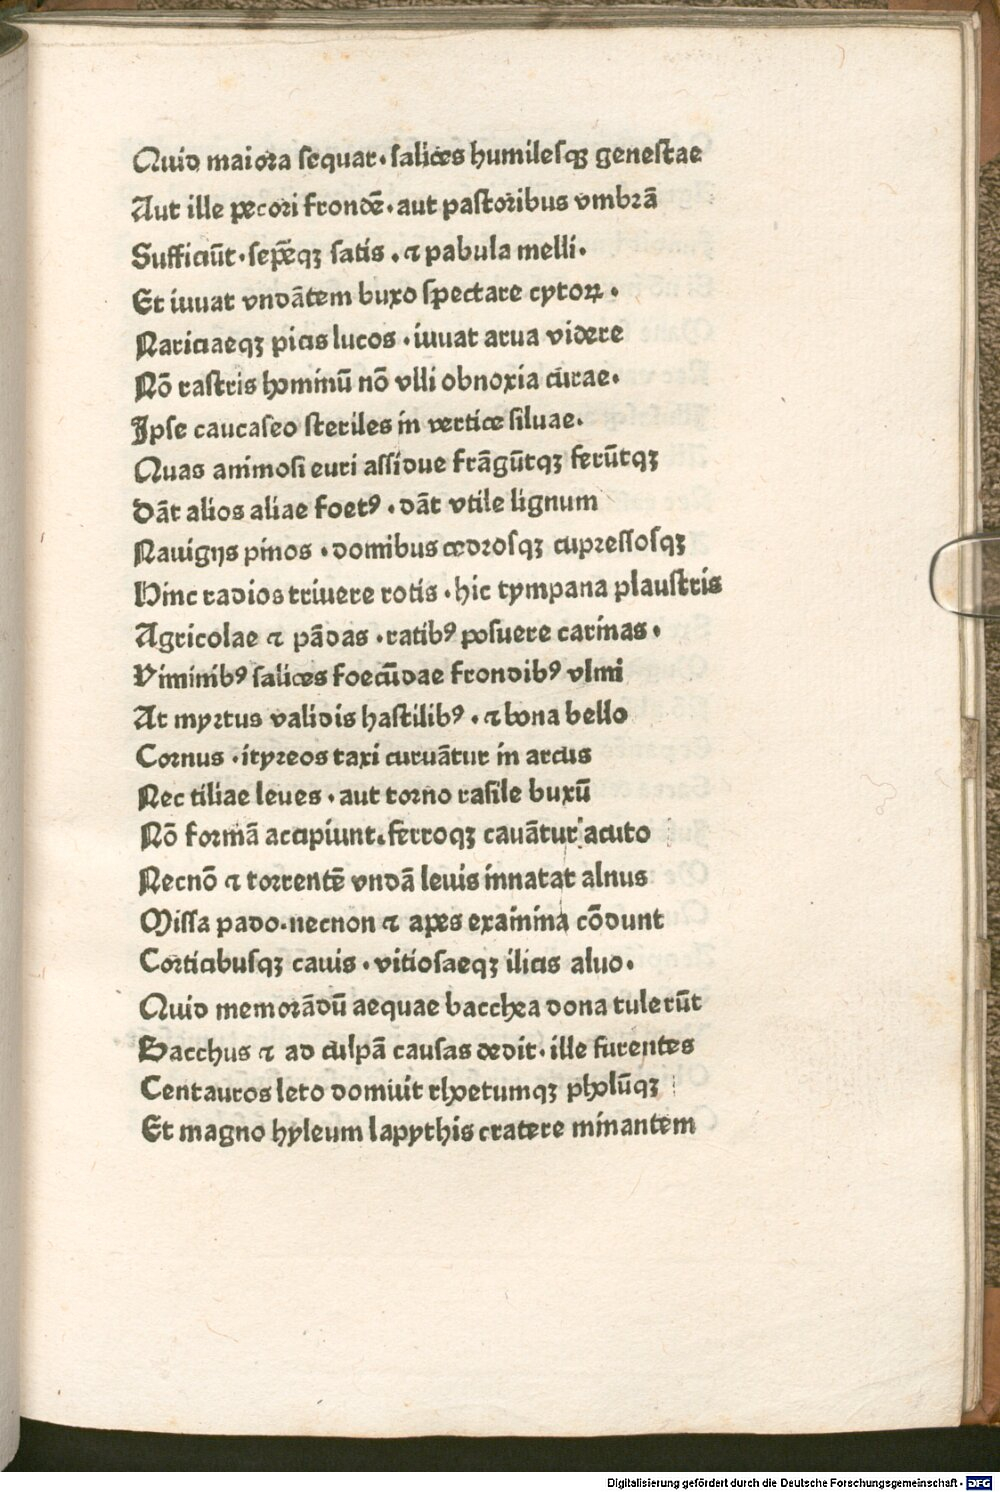 Quid maiora sequar· salices humilesqꝫ genestae
Aut ille pecori frondē· aut pastoribus vmbrā
Sufficiūt· sepēqꝫ satis · ⁊ pabula melli·
Et iuuat vndātem buxo spectare cytoꝝ ·
Nariciaeqꝫ picis lucos · iuuat arua videre
Nō rastris hominū nō vlli obnoxia curae·
Ipse caucaseo steriles in vertice siluae·
Quas animosi euri assidue frāgūtqꝫ ferūtqꝫ
Dāt alios aliae foetꝰ · dāt vtile lignum
Nauigijs pinos · domibus cedrosqꝫ cupressosqꝫ
Hinc radios triuere rotis · hic tympana plaustris
Agricolae ⁊ pādas · ratibꝰ posuere carinas ·
Viminibꝰ salices foecūdae frondibꝰ vlmi
At myrtus validis hastilibꝰ · ⁊ bona bello
Cornus · ityreos taxi curuātur in arcus
Nec tiliae leues · aut torno rasile buxū
Nō formā accipiunt· ferroqꝫ cauātur acuto
Necnō ⁊ torrentē vndā leuis innatat alnus
Missa pado· necnon ⁊ apes examina cōdunt
Corticibusqꝫ cauis · vitiosaeqꝫ ilicis aluo·
Quid memorādū aequae bacchea dona tulerūt
Bacchus ⁊ ad culpā causas dedit· ille furentes
Centauros leto domuit rhoetumqꝫ pholūqꝫ
Et magno hyleum lapythis cratere minantem
Digitalisierung gefördert durch die Deutsche Forschungsgemeinschaft - DFG